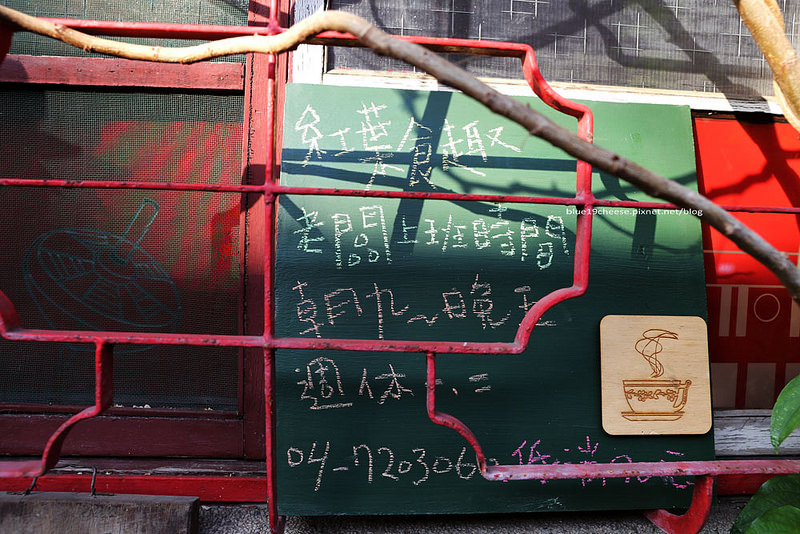 紅葉食趣
老闆上班時間
朝九~晚五
週休一.二
04-7203060
低消
blue19cheese.pixnet.net/blog